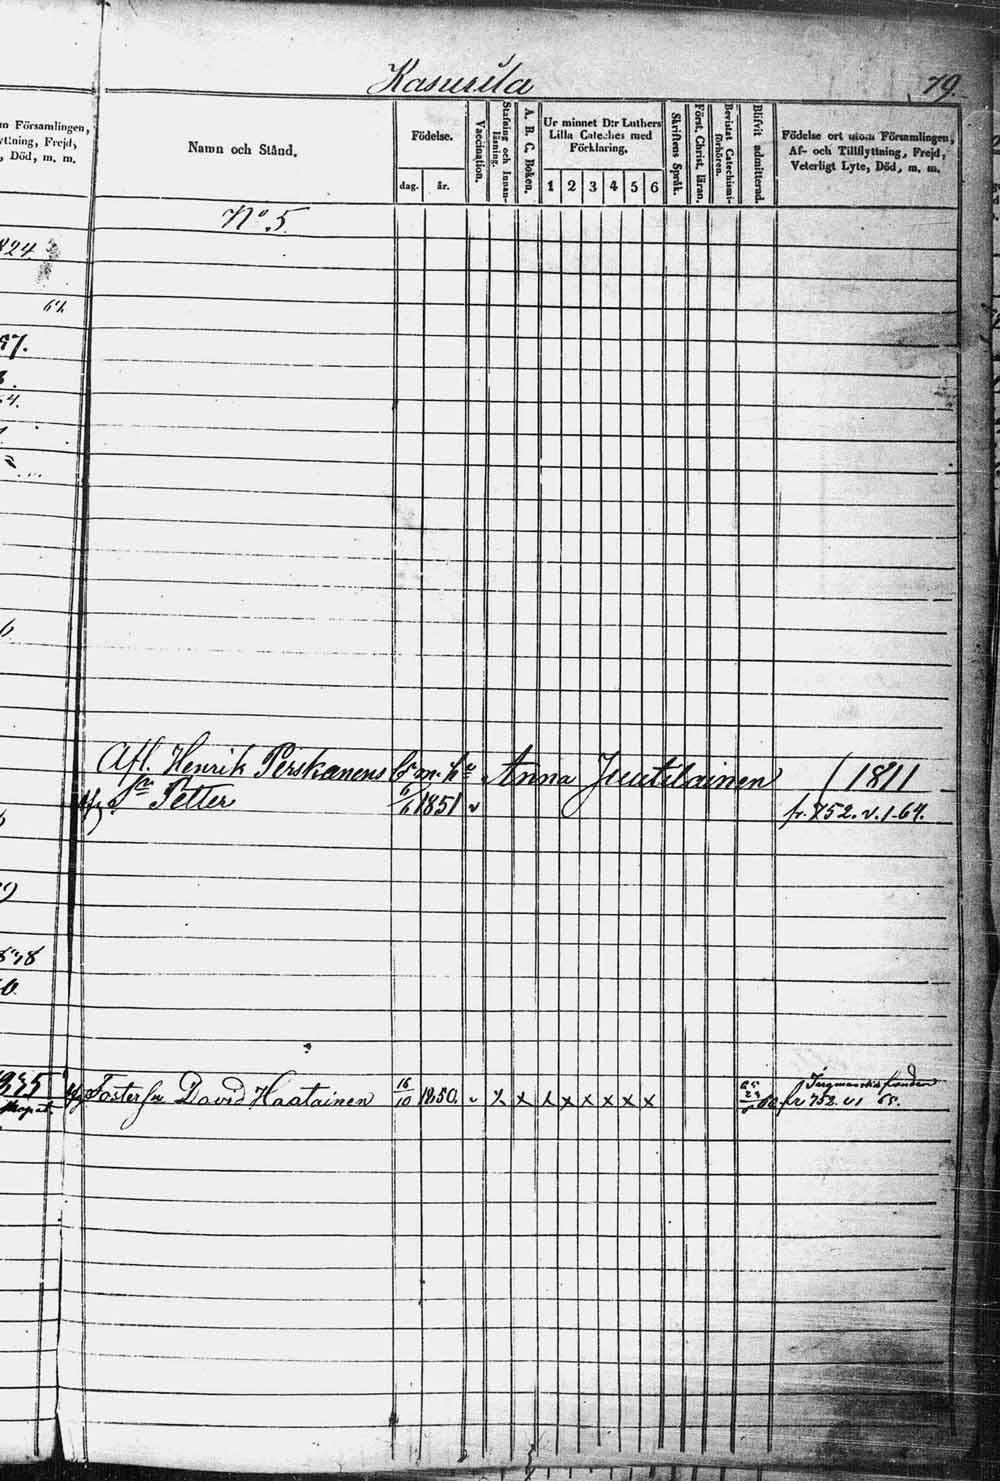 Kasurila
79.
m Församlingen,
yttning, Frejd,
, Död, m. m.
Namn och Stånd.
Födelse.
dag.
år.
Vaccination.
Stafning och Innan-
läsning.
A. B. C. Boken.
Ur minnet D:r Luthers
Lilla Cateches med
Förklaring.
1 2 3 4 5 6
Skriftens Språk.
Först. Christ. läran.
Bevistat Catechismi-
förhören.
Blifvit admitterad.
Födelse ort utom Församlingen,
Af- och Tillflyttning, Frejd,
Veterligt Lyte, Död, m. m.
No. 5.
824
62
57.
Afl. Henrik Pirskanens Anna Juutilainen 1811
Sn Petter 6/6 1851 v fr. 752. v. 1. 64.
9
0.
1835
Foster sn David Haatainen 16/10 1850. v x x x x x x x x fr 752. v 1 65.